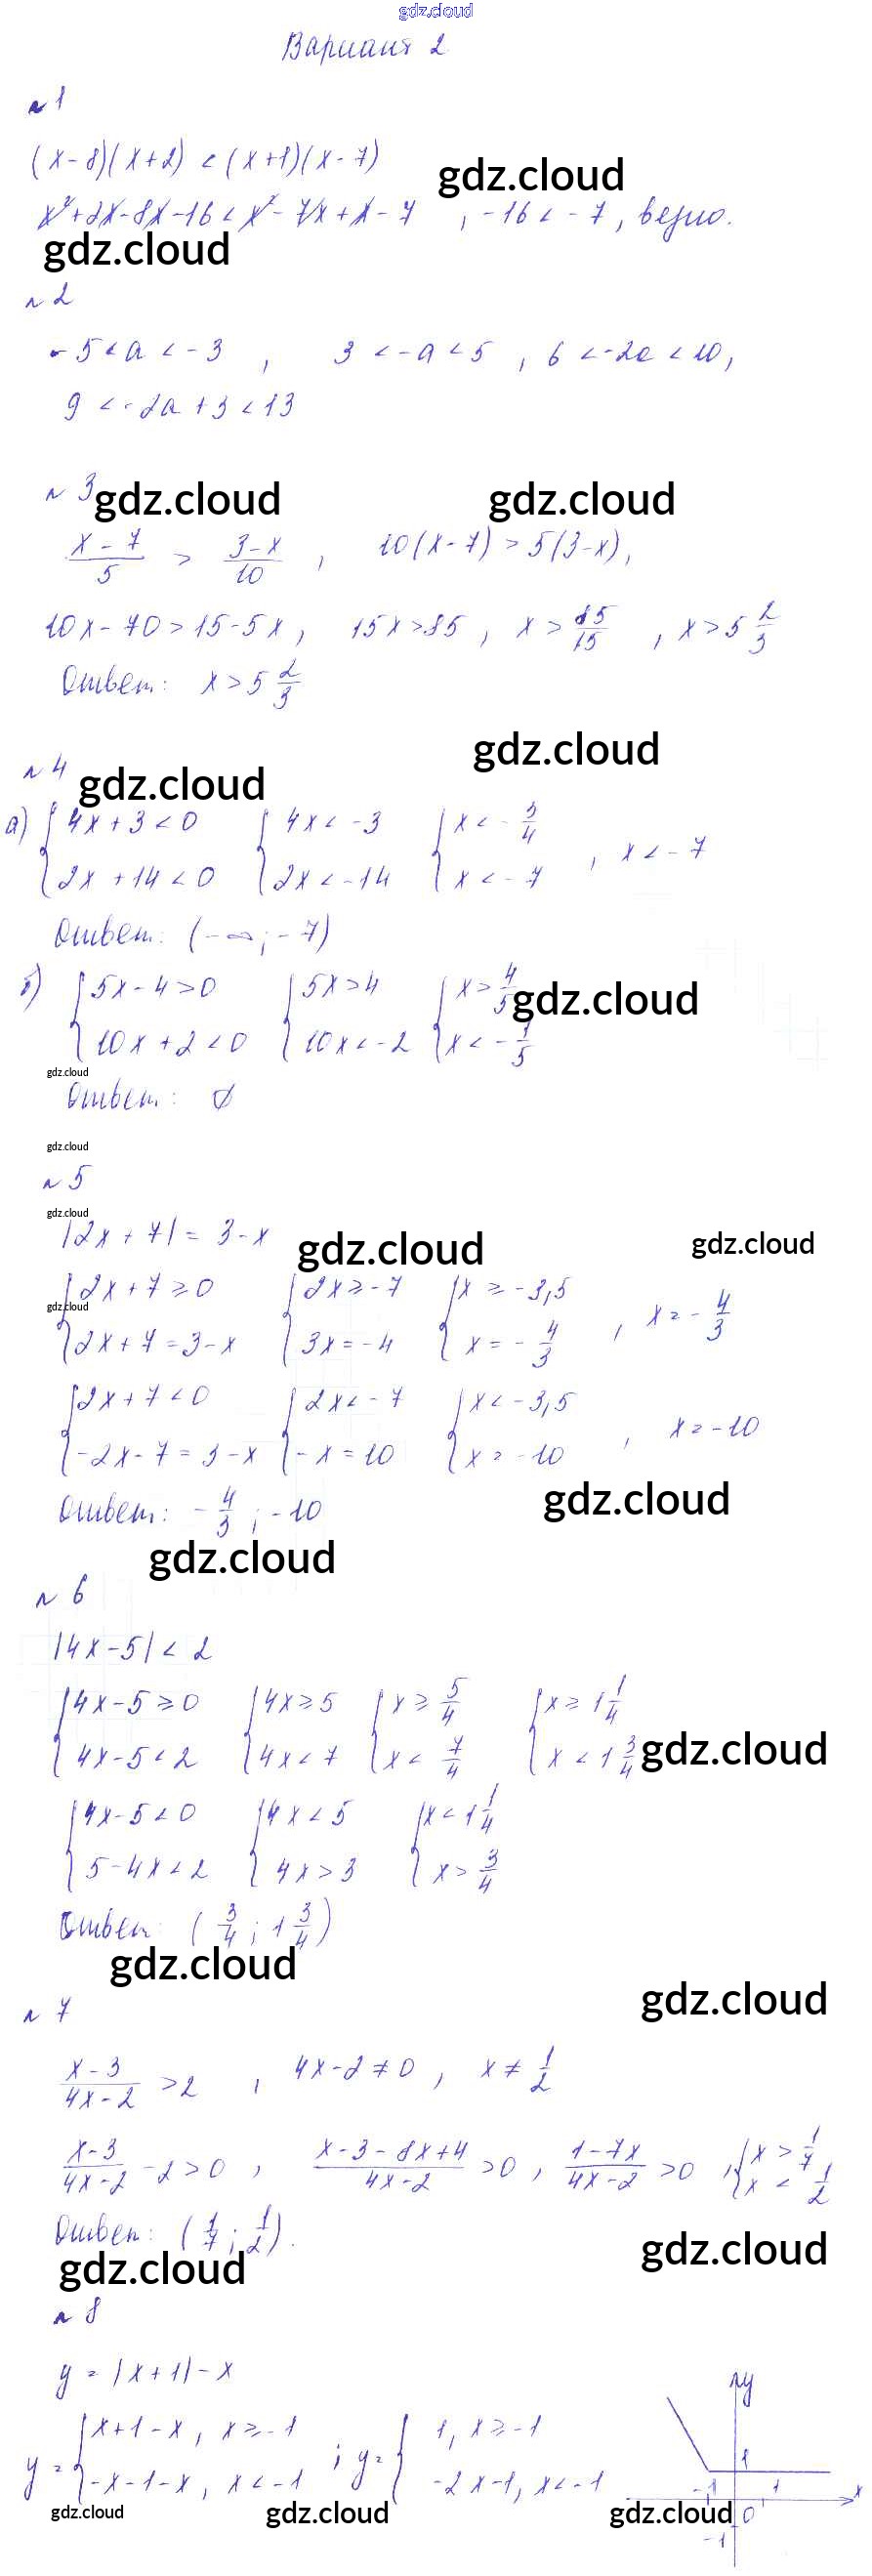 gdz.cloud
Вариант 2
№1
(x-8)(x+2) < (x+1)(x-7)
gdz.cloud
x²+2x-8x-16 < x²-7x+x-7 , -16 < -7, верно.
gdz.cloud
№2
-5 < a < -3 , 3 < -a < 5 , 6 < -2a < 10,
9 < -2a+3 < 13
№3
gdz.cloud gdz.cloud
(x-7)/5 > (3-x)/10 , 10(x-7) > 5(3-x),
10x-70 > 15-5x, 15x > 85, x > 85/15 , x > 5 2/3
Ответ: x > 5 2/3
gdz.cloud
№4
gdz.cloud
а) { 4x+3 < 0 { 4x < -3 { x < -3/4
{ 2x+14 < 0 { 2x < -14 { x < -7 , x < -7
Ответ: (-∞; -7)
б) { 5x-4 > 0 { 5x > 4 { x > 4/5
gdz.cloud
{ 10x+2 < 0 { 10x < -2 { x < -1/5
gdz.cloud
Ответ: ∅
gdz.cloud
№5
gdz.cloud
|2x+7| = 3-x
gdz.cloud gdz.cloud
{ 2x+7 ≥ 0 { 2x ≥ -7 { x ≥ -3,5
gdz.cloud
{ 2x+7 = 3-x { 3x = -4 { x = -4/3 , x = -4/3
{ 2x+7 < 0 { 2x < -7 { x < -3,5
{ -2x-7 = 3-x { -x = 10 { x = -10 , x = -10
Ответ: -4/3 ; -10
gdz.cloud
gdz.cloud
№6
|4x-5| < 2
{ 4x-5 ≥ 0 { 4x ≥ 5 { x ≥ 5/4 { x ≥ 1 1/4
{ 4x-5 < 2 { 4x < 7 { x < 7/4 { x < 1 3/4
gdz.cloud
{ 4x-5 < 0 { 4x < 5 { x < 1 1/4
{ 5-4x < 2 { 4x > 3 { x > 3/4
Ответ: (3/4 ; 1 3/4)
gdz.cloud
gdz.cloud
№7
(x-3)/(4x-2) > 2 , 4x-2 ≠ 0 , x ≠ 1/2
(x-3)/(4x-2) - 2 > 0 , (x-3-8x+4)/(4x-2) > 0 , (1-7x)/(4x-2) > 0 , { x > 1/7
{ x < 1/2
Ответ: (1/7 ; 1/2).
gdz.cloud
gdz.cloud
№8
y = |x+1| - x
y = { x+1-x, x ≥ -1 ; y = { 1, x ≥ -1
{ -x-1-x, x < -1 { -2x-1, x < -1
y
1
-1 1 x
0
-1
gdz.cloud gdz.cloud gdz.cloud